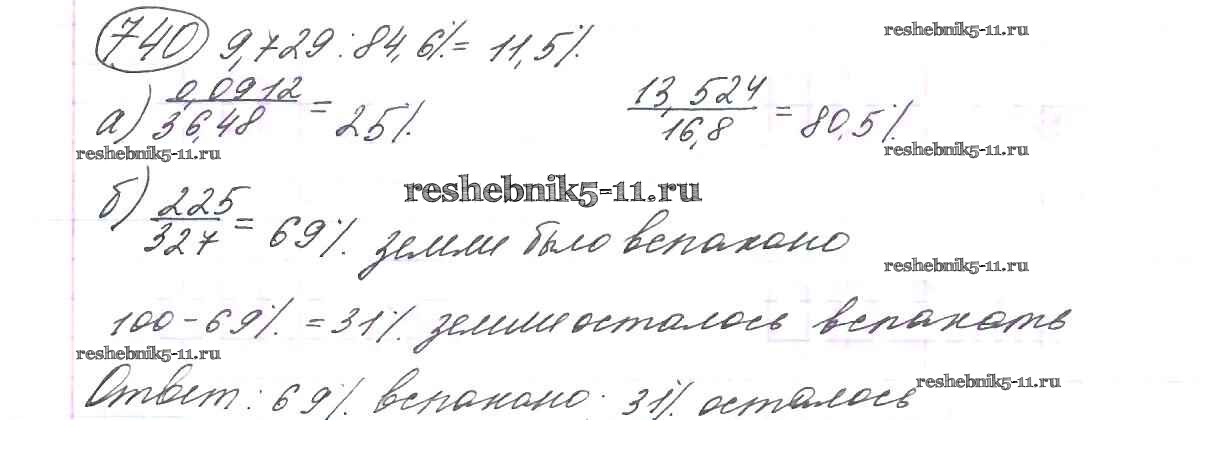 740 9,729 : 84,6% = 11,5%
reshebnik5-11.ru
а) 0,0912/36,48 = 25%. 13,524/16,8 = 80,5%
reshebnik5-11.ru
reshebnik5-11.ru
reshebnik5-11.ru
б) 225/327 = 69%. земли было вспахано
reshebnik5-11.ru
100 - 69% = 31% земли осталось вспахать
reshebnik5-11.ru
reshebnik5-11.ru
Ответ: 69% вспахано. 31% осталось